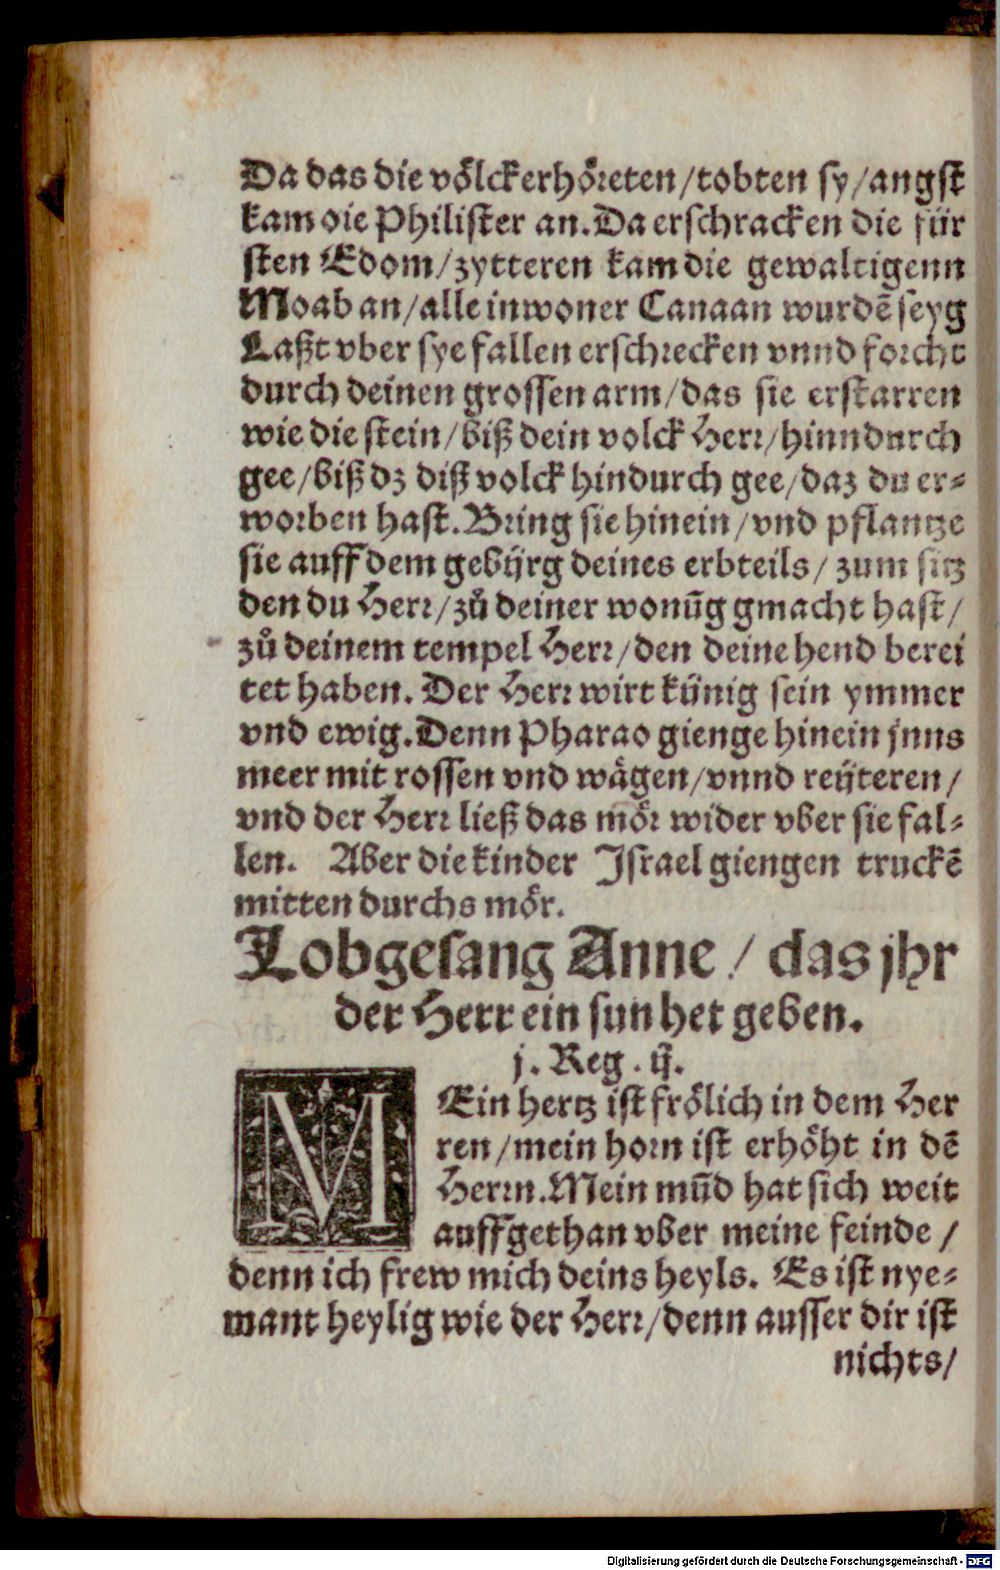 Da das die voͤlck erhoͤreten/tobten sy/angst
kam die Philister an. Da erschracken die für
sten Edom/zytteren kam die gewaltigenn
Moab an/alle inwoner Canaan wurdẽ feyg
Laßt vber sye fallen erschrecken vnnd forcht
durch deinen grossen arm/das sie erstarren
wie die stein/biß dein volck Herr/hinn durch
gee/biß dz diß volck hindurch gee/daz du er-
worben hast. Bring sie hinein/vnd pflantze
sie auff dem gebÿrg deines erbteils/zum sitz
den du Herr/zů deiner wonũg gmacht hast/
zů deinem tempel Herr/den deine hend berei
tet haben. Der Herr wirt künig sein ymmer
vnd ewig. Denn Pharao gienge hinein jnns
meer mit rossen vnd waͤgen/vnnd reÿteren/
vnd der Herr ließ das moͤr wider vber sie fal-
len. Aber die kinder Israel giengen truckẽ
mitten durchs moͤr.
Lobgesang Anne/ das jhr
der Herr ein sun het geben.
j. Reg. ij.
MEin hertz ist froͤlich in dem Her
ren/mein horn ist erhoͤht in dẽ
Herrn. Mein mũd hat sich weit
auffgethan vber meine feinde/
denn ich frew mich deins heyls. Es ist nye-
mant heylig wie der Herr/denn ausser dir ist
nichts/
Digitalisierung gefördert durch die Deutsche Forschungsgemeinschaft - DFG